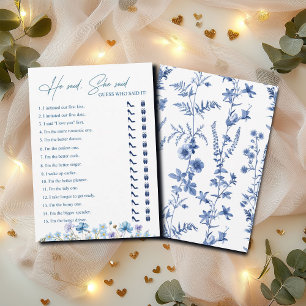 He said, She said
GUESS WHO SAID IT
1. I initiated our first kiss.
2. I initiated our first date.
3. I said "I love you" first.
4. I'm the more romantic one.
5. I'm the better dancer.
6. I'm the patient one.
7. I'm the better cook.
8. I'm the better singer.
9. I wake up earlier.
10. I'm the better planner.
11. I'm the tidy one.
12. I take longer to get ready.
13. I'm the funny one.
14. I'm the bigger spender.
15. I'm the better driver.